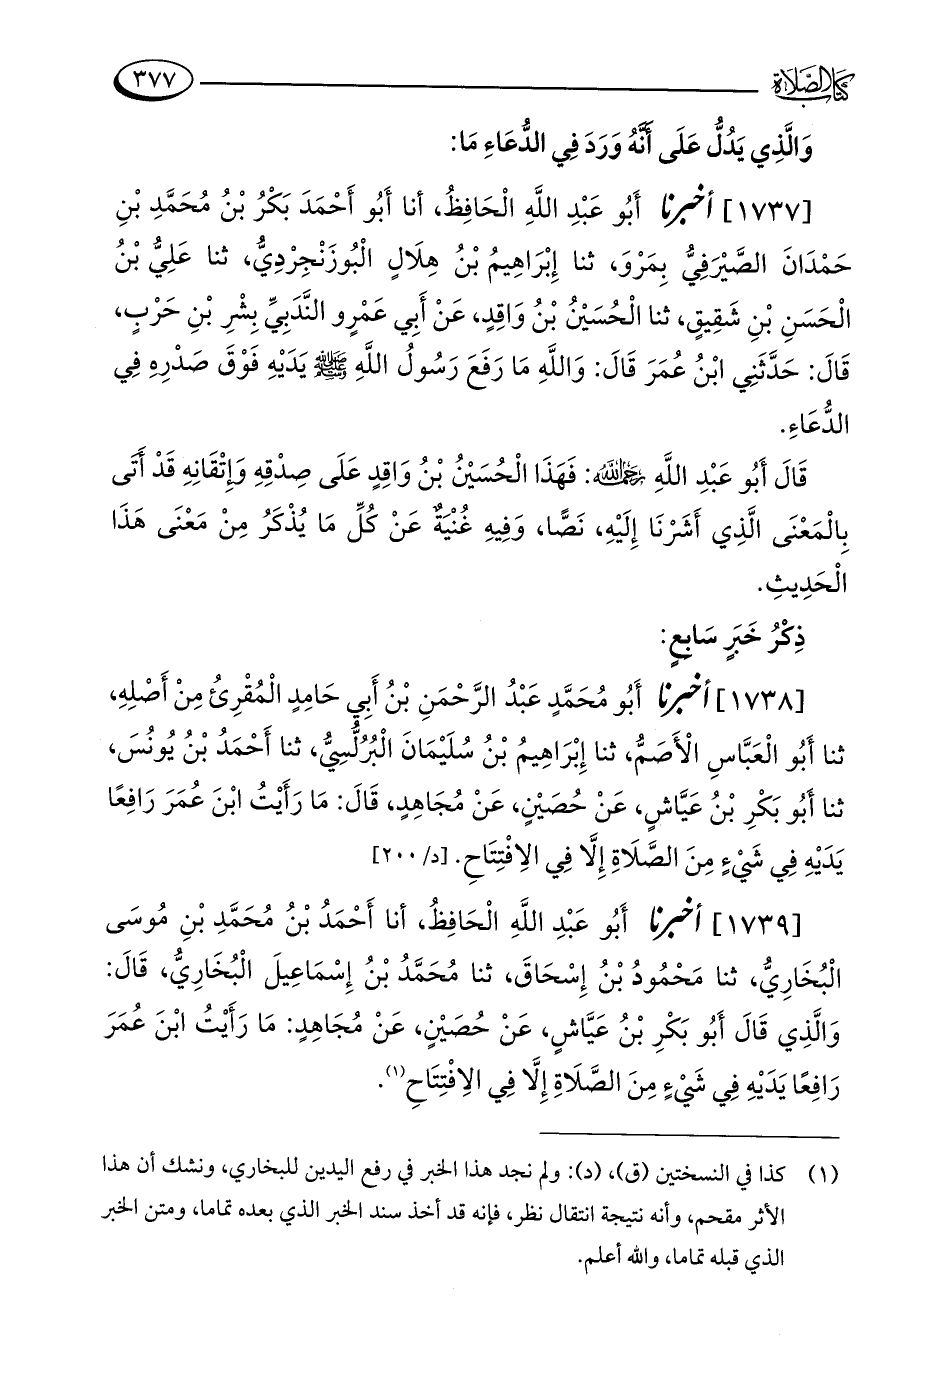 كتاب الصلاة ٣٧٧
وَالَّذِي يَدُلُّ عَلَى أَنَّهُ وَرَدَ فِي الدُّعَاءِ مَا:
[١٧٣٧] أخبرنا أَبُو عَبْدِ اللَّهِ الْحَافِظُ، أنا أَبُو أَحْمَدَ بَكْرُ بْنُ مُحَمَّدِ بْنِ
حَمْدَانَ الصَّيْرَفِيُّ بِمَرْوَ، ثنا إِبْرَاهِيمُ بْنُ هِلَالٍ الْبُوزَنْجِرْدِيُّ، ثنا عَلِيُّ بْنُ
الْحَسَنِ بْنِ شَقِيقٍ، ثنا الْحُسَيْنُ بْنُ وَاقِدٍ، عَنْ أَبِي عَمْرٍو النَّدَبِيِّ بِشْرِ بْنِ حَرْبٍ،
قَالَ: حَدَّثَنِي ابْنُ عُمَرَ قَالَ: وَاللَّهِ مَا رَفَعَ رَسُولُ اللَّهِ ﷺ يَدَيْهِ فَوْقَ صَدْرِهِ فِي
الدُّعَاءِ.
قَالَ أَبُو عَبْدِ اللَّهِ رحمه الله: فَهَذَا الْحُسَيْنُ بْنُ وَاقِدٍ عَلَى صِدْقِهِ وَإِتْقَانِهِ قَدْ أَتَى
بِالْمَعْنَى الَّذِي أَشَرْنَا إِلَيْهِ، نَصًّا، وَفِيهِ غُنْيَةٌ عَنْ كُلِّ مَا يُذْكَرُ مِنْ مَعْنَى هَذَا
الْحَدِيثِ.
ذِكْرُ خَبَرٍ سَابِعٍ:
[١٧٣٨] أخبرنا أَبُو مُحَمَّدٍ عَبْدُ الرَّحْمَنِ بْنُ أَبِي حَامِدٍ الْمُقْرِئُ مِنْ أَصْلِهِ،
ثنا أَبُو الْعَبَّاسِ الْأَصَمُّ، ثنا إِبْرَاهِيمُ بْنُ سُلَيْمَانَ الْبُرُلُّسِيُّ، ثنا أَحْمَدُ بْنُ يُونُسَ،
ثنا أَبُو بَكْرِ بْنُ عَيَّاشٍ، عَنْ حُصَيْنٍ، عَنْ مُجَاهِدٍ، قَالَ: مَا رَأَيْتُ ابْنَ عُمَرَ رَافِعًا
يَدَيْهِ فِي شَيْءٍ مِنَ الصَّلَاةِ إِلَّا فِي الِافْتِتَاحِ. [د/٢٠٠]
[١٧٣٩] أخبرنا أَبُو عَبْدِ اللَّهِ الْحَافِظُ، أنا أَحْمَدُ بْنُ مُحَمَّدِ بْنِ مُوسَى
الْبُخَارِيُّ، ثنا مَحْمُودُ بْنُ إِسْحَاقَ، ثنا مُحَمَّدُ بْنُ إِسْمَاعِيلَ الْبُخَارِيُّ، قَالَ:
وَالَّذِي قَالَ أَبُو بَكْرِ بْنُ عَيَّاشٍ، عَنْ حُصَيْنٍ، عَنْ مُجَاهِدٍ: مَا رَأَيْتُ ابْنَ عُمَرَ
رَافِعًا يَدَيْهِ فِي شَيْءٍ مِنَ الصَّلَاةِ إِلَّا فِي الِافْتِتَاحِ(١).
(١) كذا في النسختين (ق)، (د): ولم نجد هذا الخبر في رفع اليدين للبخاري، ونشك أن هذا
الأثر مقحم، وأنه نتيجة انتقال نظر، فإنه قد أخذ سند الخبر الذي بعده تماما، ومتن الخبر
الذي قبله تماما، والله أعلم.